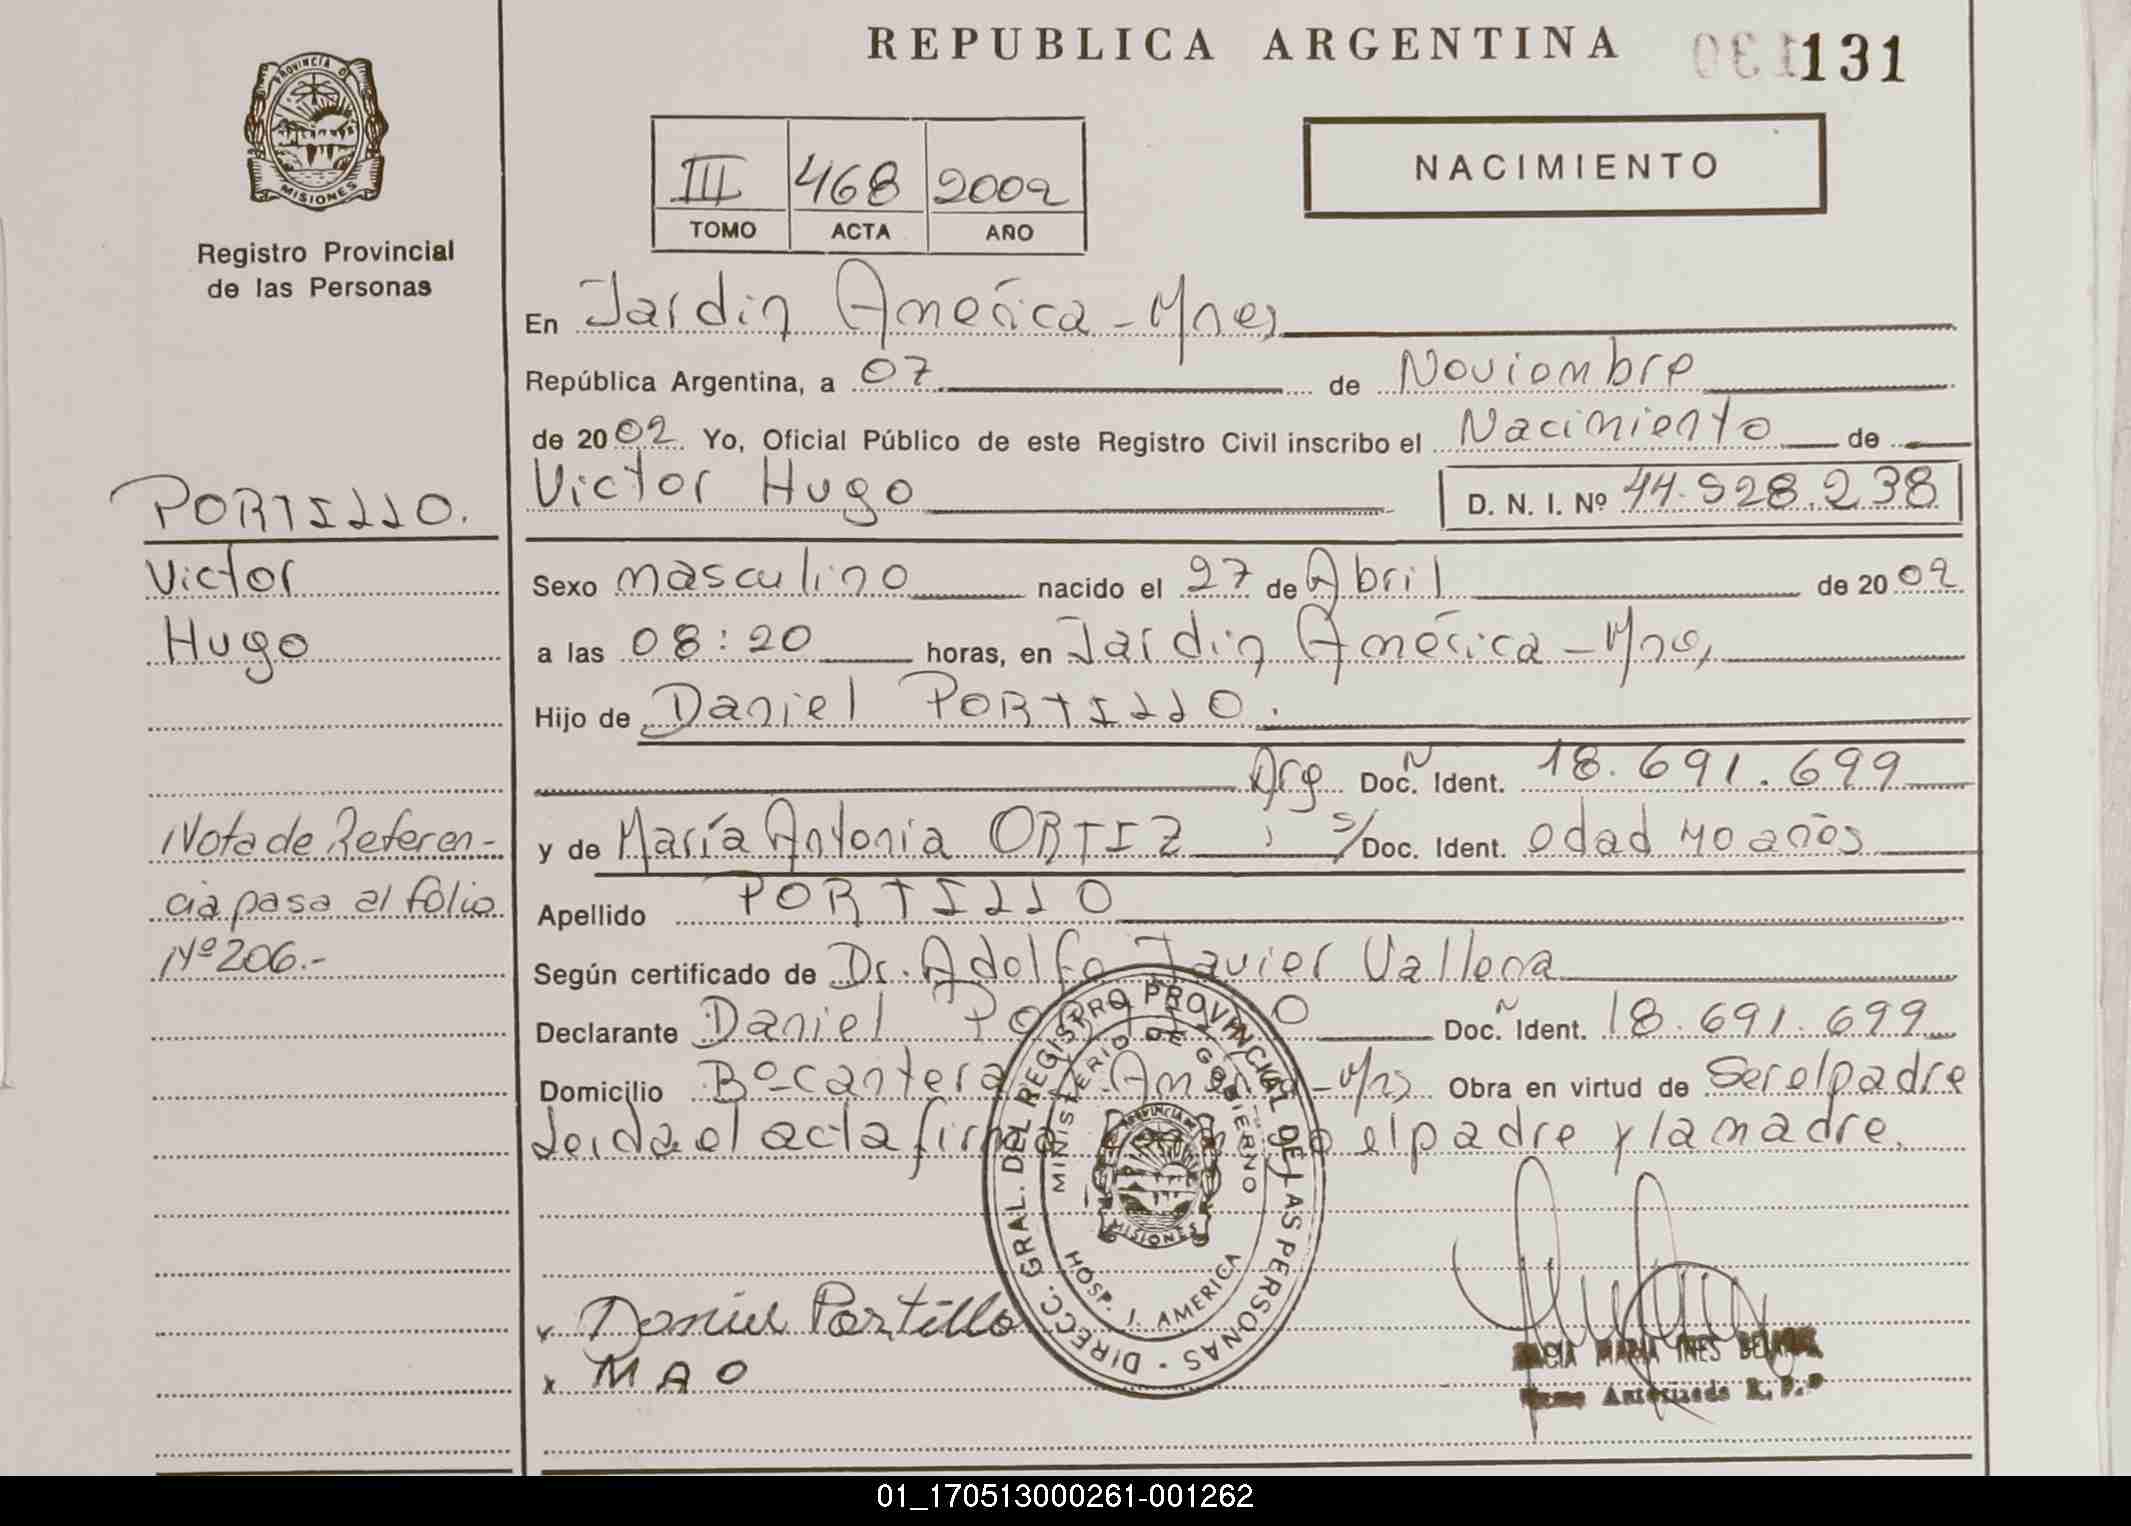 REPUBLICA ARGENTINA
131
PROVINCIA DE
MISIONES
Registro Provincial
de las Personas
III 468 2002
TOMO ACTA AÑO
NACIMIENTO
En Jardin América - Mnes
República Argentina, a 07 de Noviembre
de 2002 Yo, Oficial Público de este Registro Civil inscribo el Nacimiento de
Victor Hugo D. N. I. Nº 44.528.238
PORTILLO.
Victor
Hugo
Sexo masculino nacido el 27 de Abril de 2002
a las 08:20 horas, en Jardin América - Mnes
Hijo de Daniel PORTILLO.
Arg Doc. Ident. 18.691.699
y de María Antonia ORTIZ, s/Doc. Ident. edad 40 años
Apellido PORTILLO
Nota de Referen-
cia pasa al folio
Nº 206.-
Según certificado de Dr. Adolfo Javier
Declarante Daniel Doc. Ident. 18.691.699
Domicilio Bº cantera Amer - Mns Obra en virtud de Ser el padre
Leida el acta el padre y la madre.
DIRECC. GRAL. DEL REGISTRO PROVINCIAL DE LAS PERSONAS
MINISTERIO DE GOBIERNO
PROVINCIA DE
MISIONES
HOSP. J. AMERICA
x Daniel Portillo
x MAO
MARIA INES
Autorizada R. P. P
01_170513000261-001262